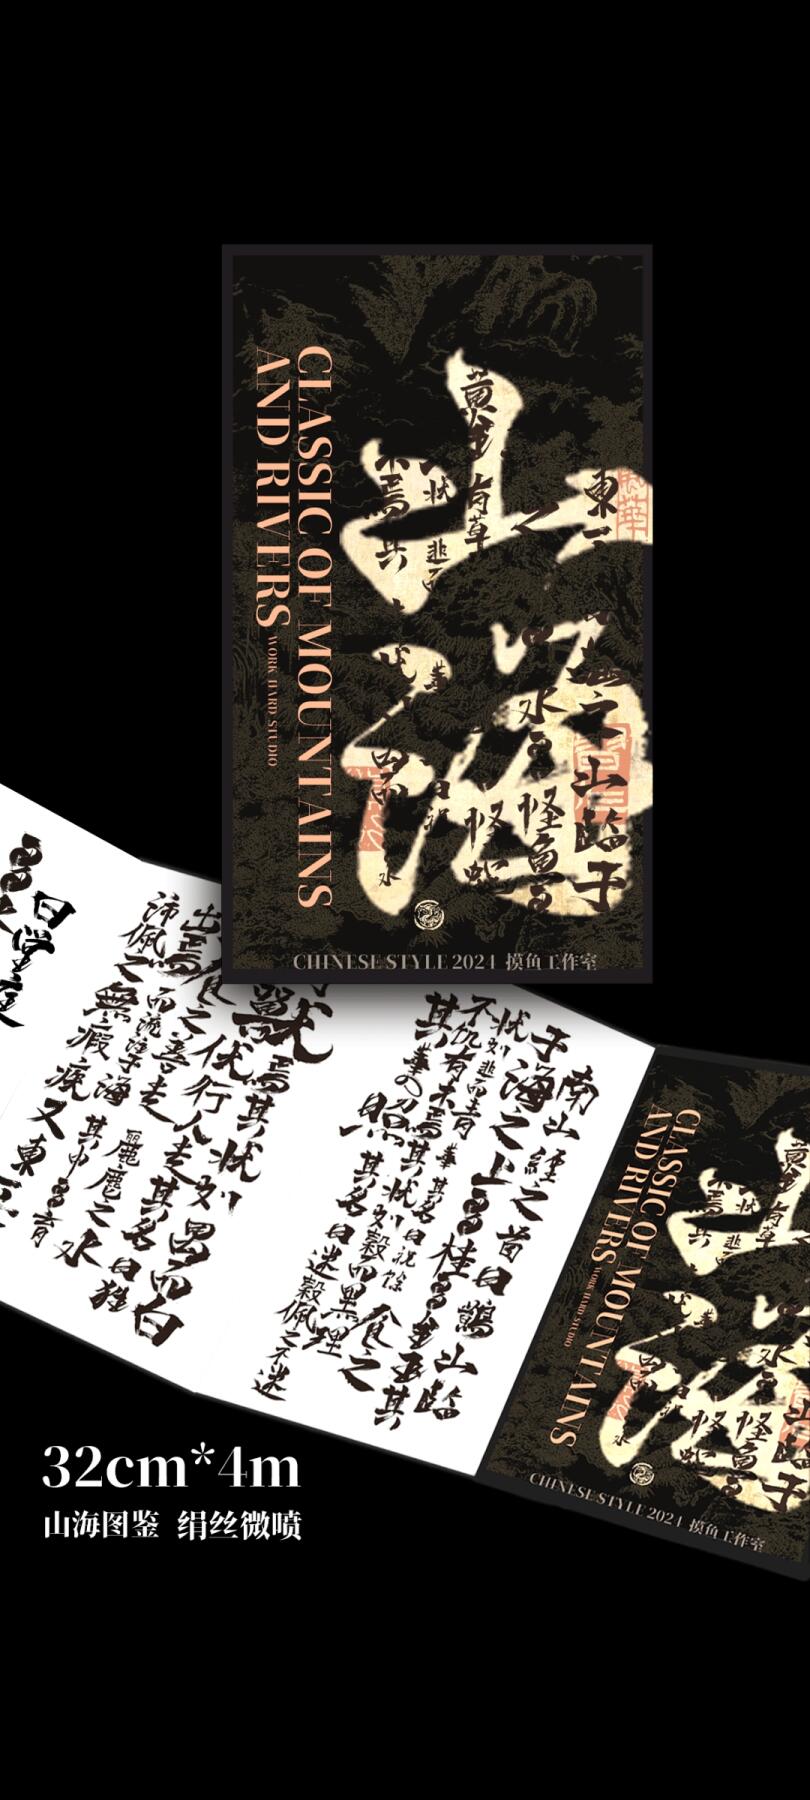 CLASSIC OF MOUNTAINS
AND RIVERS
WORK HARD STUDIO
山海
CHINESE STYLE 2024 摸鱼工作室
南山經之首曰鵲山臨
于海之上多桂多金玉其
状如韭而青華其名曰祝馀食之
不饥有木焉其状如穀而黑理
其華四照其名曰迷穀佩之不迷
獸焉其状如禺而白
伏行人走其名曰狌
食之善走麗麂之水
出焉而流注于海其中多育
沛佩之無瘕疾又東
曰堂庭
CLASSIC OF MOUNTAINS
AND RIVERS
WORK HARD STUDIO
山海
CHINESE STYLE 2024 摸鱼工作室
32cm*4m
山海图鉴 绢丝微喷